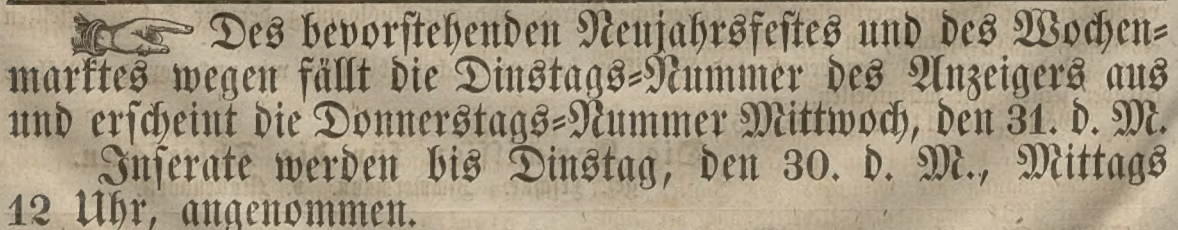 ☞ Des bevorstehenden Neujahrsfestes und des Wochen-
marktes wegen fällt die Dinstags-Nummer des Anzeigers aus
und erscheint die Donnerstags-Nummer Mittwoch, den 31. d. M.
Inserate werden bis Dinstag, den 30. d. M., Mittags
12 Uhr, angenommen.